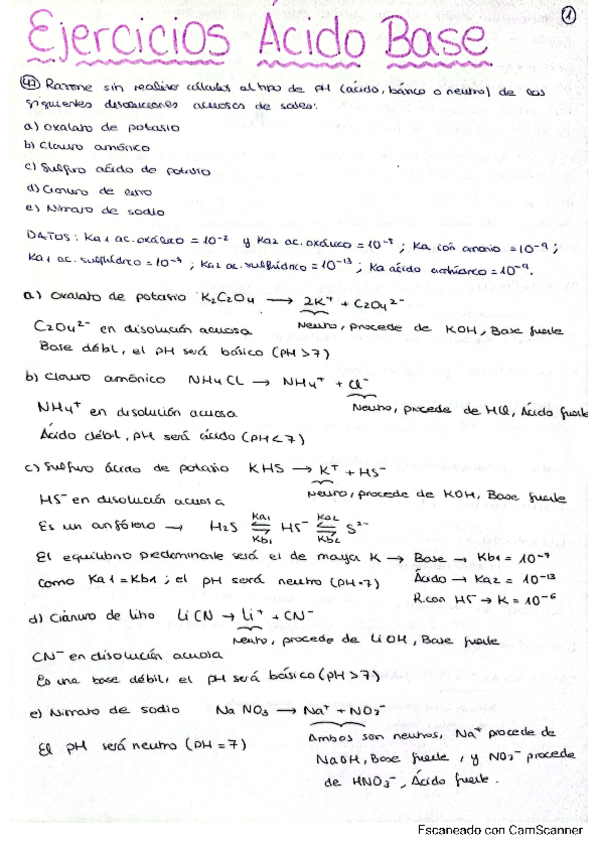 1
Ejercicios Ácido Base
47 Razone sin realizar cálculos el tipo de pH (ácido, básico o neutro) de las
siguientes disoluciones acuosas de sales:
a) Oxalato de potasio
b) Cloruro amónico
c) Sulfuro ácido de potasio
d) Cianuro de litio
e) Nitrato de sodio
DATOS: Ka1 ac. oxálico = 10⁻² y Ka2 ac. oxálico = 10⁻⁵ ; Ka ión amonio = 10⁻⁹ ;
Ka1 ac. sulfhídrico = 10⁻⁷ ; Ka2 ac. sulfhídrico = 10⁻¹³ ; Ka ácido cianhídrico = 10⁻⁹.
a) Oxalato de potasio K₂C₂O₄ ⟶ 2K⁺ + C₂O₄²⁻
C₂O₄²⁻ en disolución acuosa Neutro, procede de KOH, Base fuerte
Base débil, el pH será básico (pH > 7)
b) Cloruro amónico NH₄Cl → NH₄⁺ + Cl⁻
NH₄⁺ en disolución acuosa Neutro, procede de HCl, Ácido fuerte
Ácido débil, pH será ácido (pH < 7)
c) Sulfuro ácido de potasio KHS ⟶ K⁺ + HS⁻
HS⁻ en disolución acuosa Neutro, procede de KOH, Base fuerte
Es un anfótero ⟶ H₂S ⇌ HS⁻ ⇌ S²⁻ Ka1 Kb1 Ka2 Kb2
El equilibrio predominante será el de mayor K → Base → Kb1 = 10⁻⁷
como Ka1 = Kb1 ; el pH será neutro (pH = 7) Ácido → Ka2 = 10⁻¹³
R.con HS⁻ → K = 10⁻⁶
d) Cianuro de litio LiCN → Li⁺ + CN⁻
Neutro, procede de LiOH, Base fuerte
CN⁻ en disolución acuosa
Es una base débil, el pH será básico (pH > 7)
e) Nitrato de sodio NaNO₃ ⟶ Na⁺ + NO₃⁻
Ambos son neutros, Na⁺ procede de
El pH será neutro (pH = 7) NaOH, Base fuerte, y NO₃⁻ procede
de HNO₃⁻, Ácido fuerte.
Escaneado con CamScanner